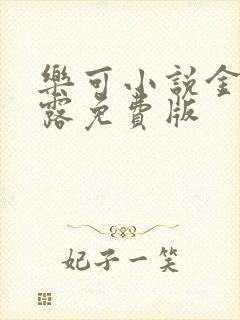 樂可小說金
露免費版
妃子一笑